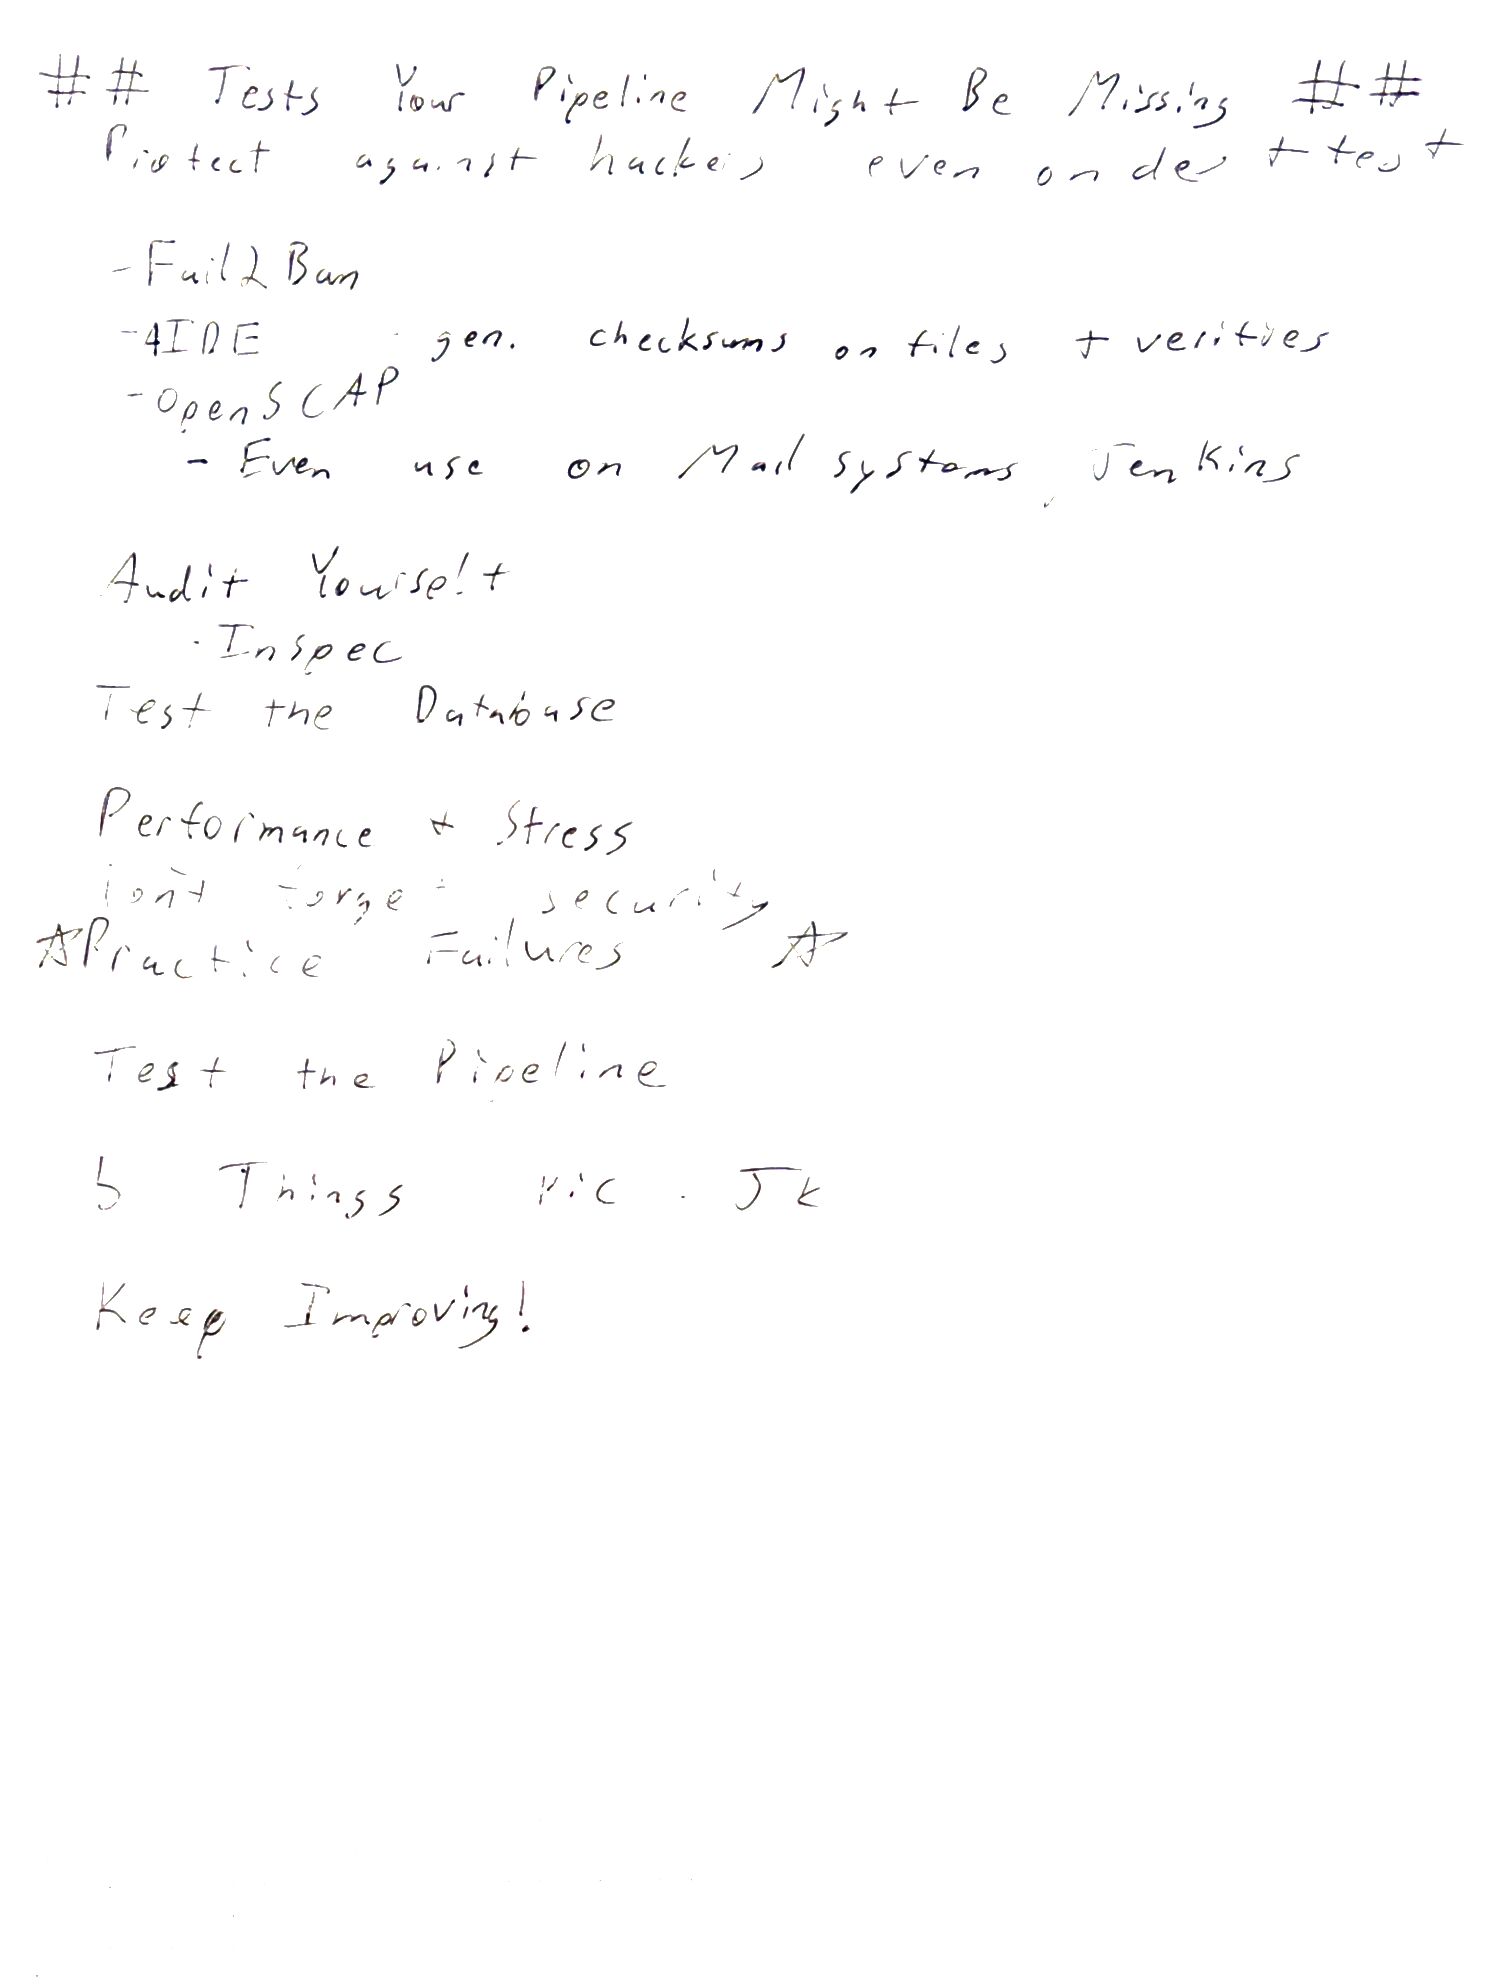 ## Tests Your Pipeline Might Be Missing ##
Protect against hackers even on dev + test
- Fail2Ban
- AIDE - gen. checksums on files + verifies
- OpenSCAP
- Even use on Mail systems, Jenkins
Audit Yourself
- Inspec
Test the Database
Performance + Stress
Don't forget security
☆Practice Failures ☆
Test the Pipeline
5 Things pic - JK
Keep Improving!